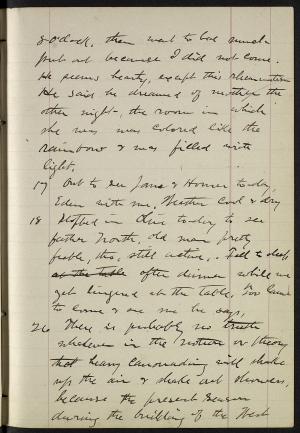 8 o'clock, then went to bed much
put out because I did not come.
He seems hearty, except this rheumatism
He said he dreamed of mother the
other night, the room in which
she was was colored like the
rainbow & was filled with
light.
17 Out to see Jane & Homer today,
Eden with me, Weather cool & dry
18 Stopped in Olive today to see
father North, old man pretty
feeble, tho, still active. Fell to sleep
at the table after dinner while we
yet lingered at the table,
to come & see me he says,
26 There is probably no truth
whatever in the notion or theory
that heavy cannonading will shake
up the air & shake out showers,
because the present season
during the building of the West